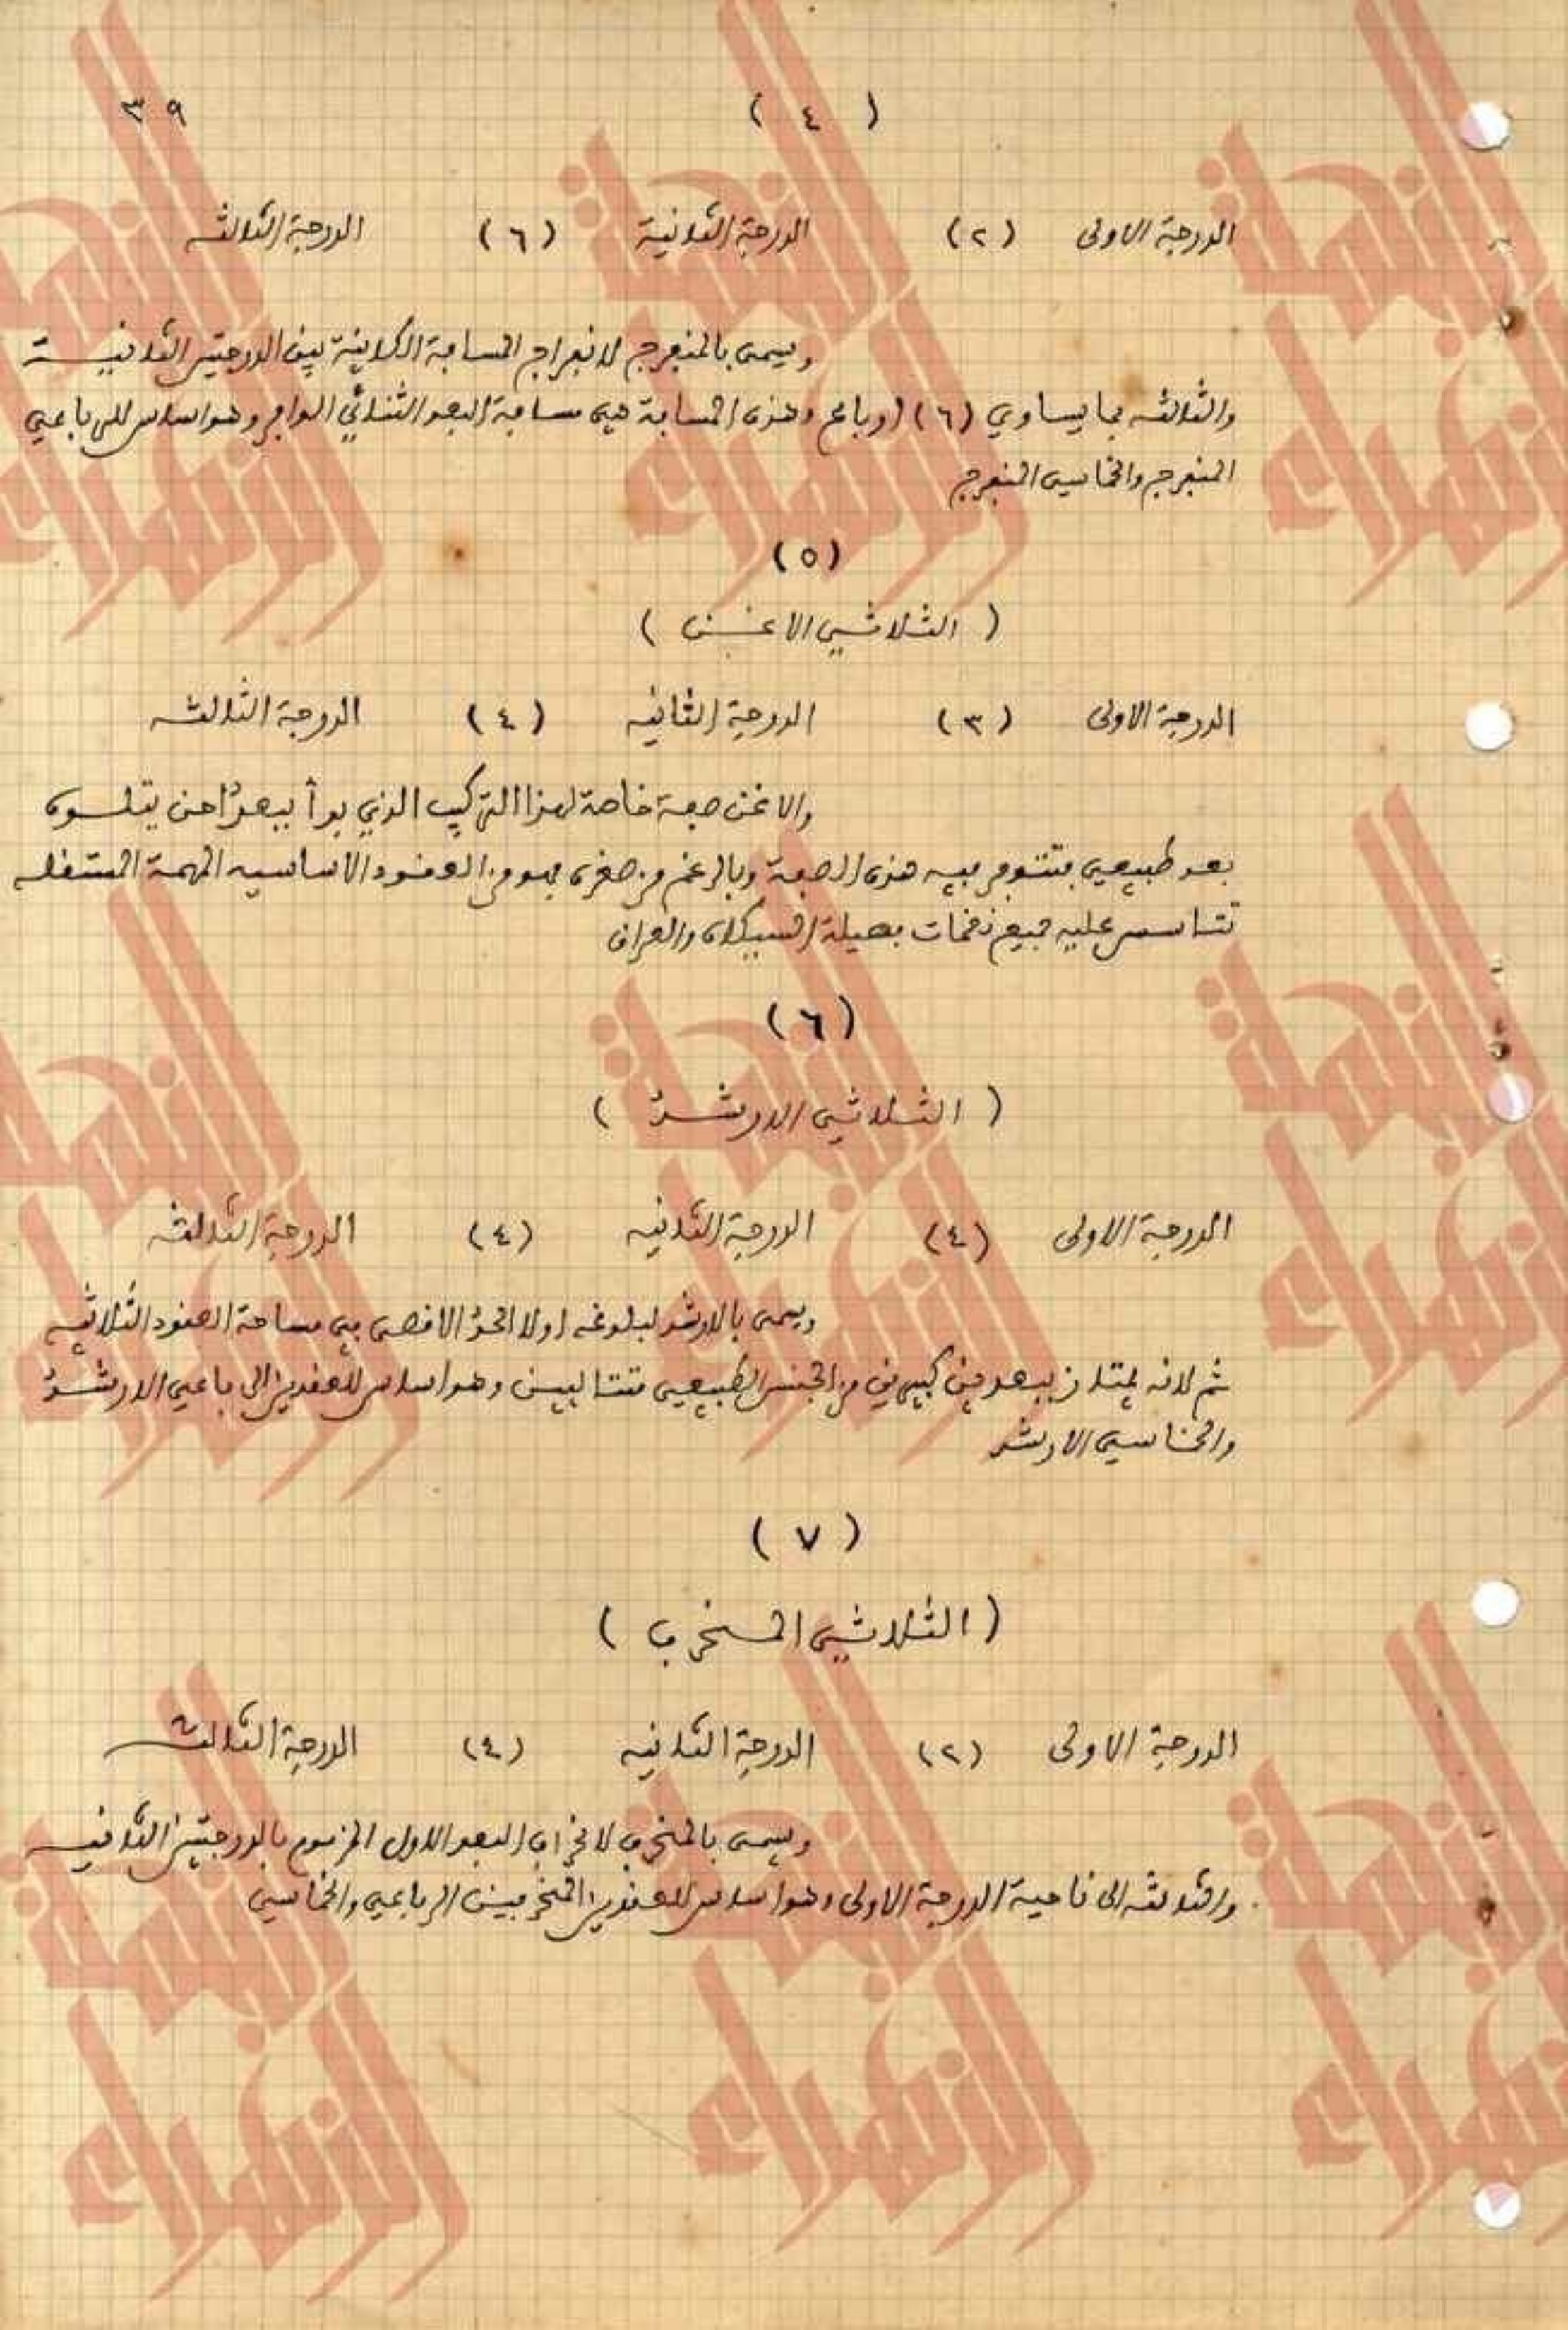 ٣٩
( ٤ )
الدرجة الاولى (٢) الدرجة الثانية (٦) الدرجة الثالثه
ويسمى بالمنفرج لانفراج المسافة الكائنة بين الدرجتين الثانيـــة
والثالثه بما يساوي (٦) ارباع وهذه المسافة هي مسافة البعد الثنائي الوافر وهو اساس للرباعي
المنفرج والخماسي المنفرج
(٥)
( الثلاثي الاغــن )
الدرجة الاولى (٣) الدرجة الثانيه (٤) الدرجة الثالثه
والاغن صفة خاصة لهذا التركيب الذي يبدأ ببعد اغن يتلــوه
بعد طبيعي فتتوفر فيه هذه الصفة وبالرغم من صغره فهو من العقود الاساسيه المهمة المستقله
تتاسس عليه جميع نغمات فصيلة السيكاه والعراق
(٦)
( الثلاثي الارشــد )
الدرجة الاولى (٤) الدرجة الثانيه (٤) الدرجة الثالثه
ويسمى بالارشد لبلوغه اولا الحد الاقصى في مساحة العقود الثلاثيه
ثم لانه يمتاز ببعدين كبيرين من الجنس الطبيعي متتاليين وهو اساس للعقدين الرباعي الارشــد
والخماسي الارشد
( ٧ )
( الثلاثي المــنحرف )
الدرجة الاولى (٢) الدرجة الثانيه (٤) الدرجة الثالثه
ويسمى بالمنحرف لانحراف البعد الاول المزموم بالدرجتين الثانيه
والثالثه الى ناحية الدرجة الاولى وهو اساس للعقدين المنحرفين الرباعي والخماسي